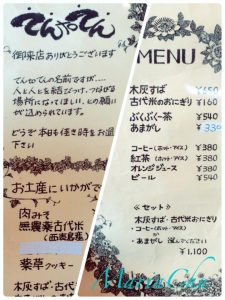 てんやてん
御来店ありがとうございます
てんやてんの名前ですば....
人と人とを結びつけ、つながる
場所になってほしい、との願い
が込められています。
どうぞ本日も佳き時をお過
し下さい
お土産にいかがで
肉みそ
無農薬古代米
(西表島産)
薬草クッキー
MENU
木灰すば ¥650
古代米のおにぎり ¥160
ぶくぶく茶 ¥540
あまがし ¥330
コーヒー(ホット・アイス) ¥380
紅茶(ホット・アイス) ¥380
オレンジジュース ¥380
ビール ¥540
≪セット≫
木灰すば・古代米おにぎり
・コーヒー(ホット・アイス)
・あまがし 選んでください
¥1,100